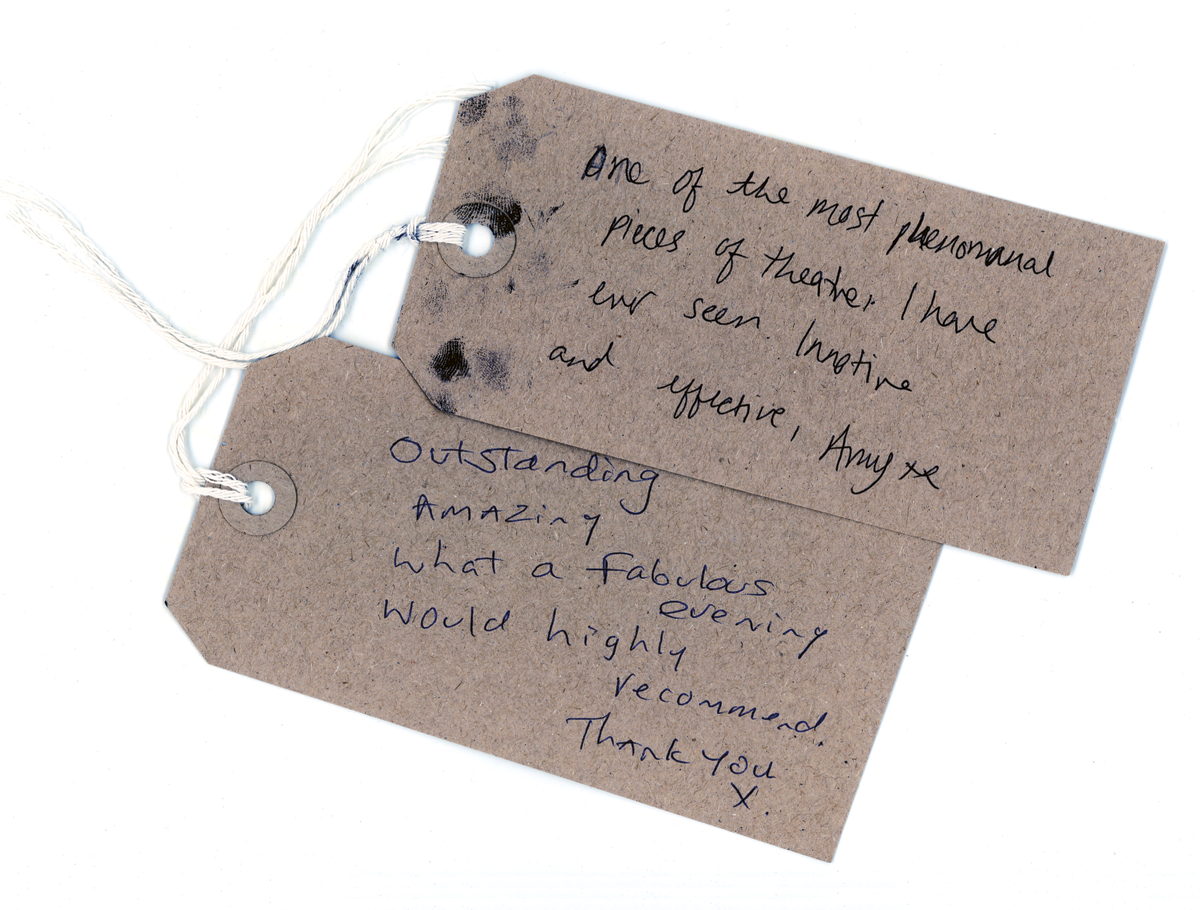 One of the most phenomanal
pieces of theatre, I have
ever seen Innotive
and effective, Amy xx
Outstanding
Amazing
What a fabulous
evening
Would highly
recommend.
Thank You
X.